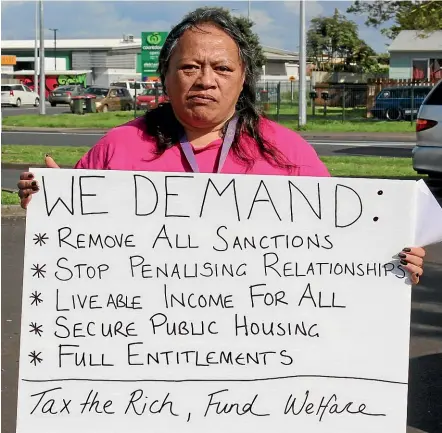 WE DEMAND:
* REMOVE ALL SANCTIONS
* STOP PENALISING RELATIONSHIPS
* LIVEABLE INCOME FOR ALL
* SECURE PUBLIC HOUSING
* FULL ENTITLEMENTS
Tax the Rich, Fund Welfare